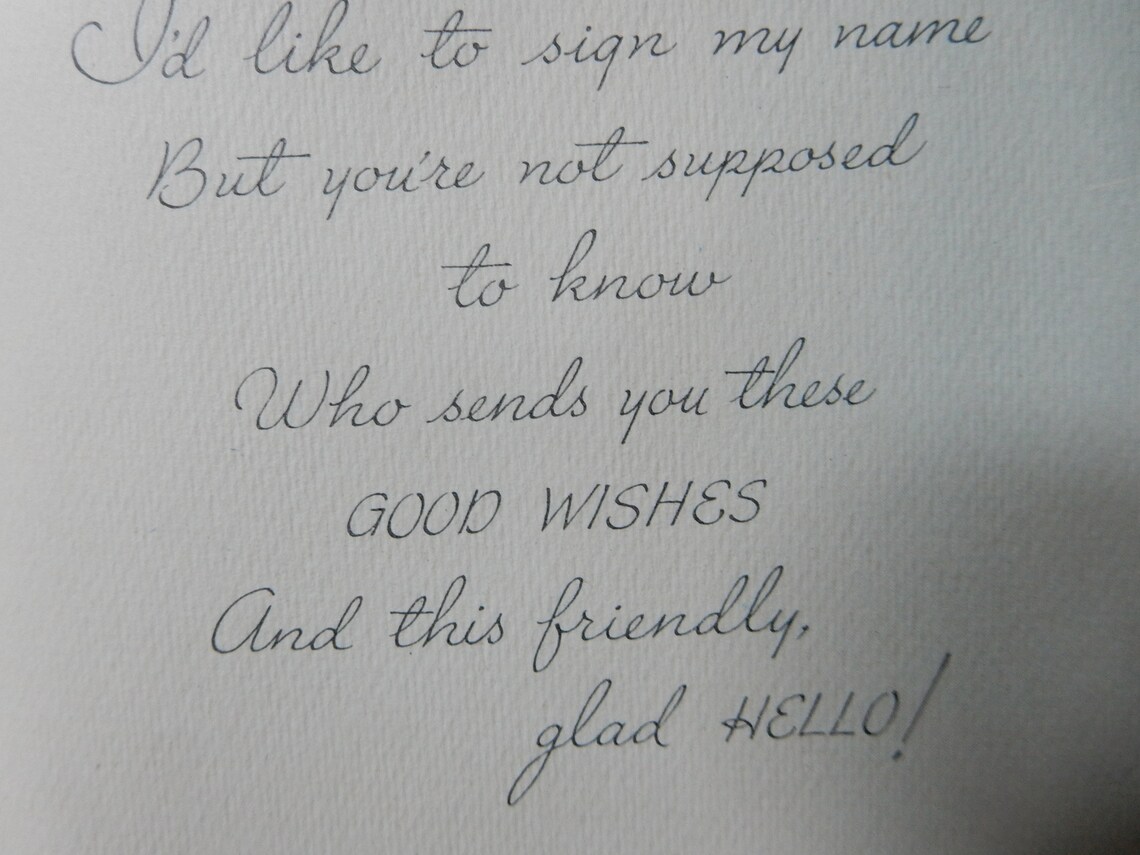 I'd like to sign my name
But you're not supposed
to know
Who sends you these
GOOD WISHES
And this friendly,
glad HELLO!